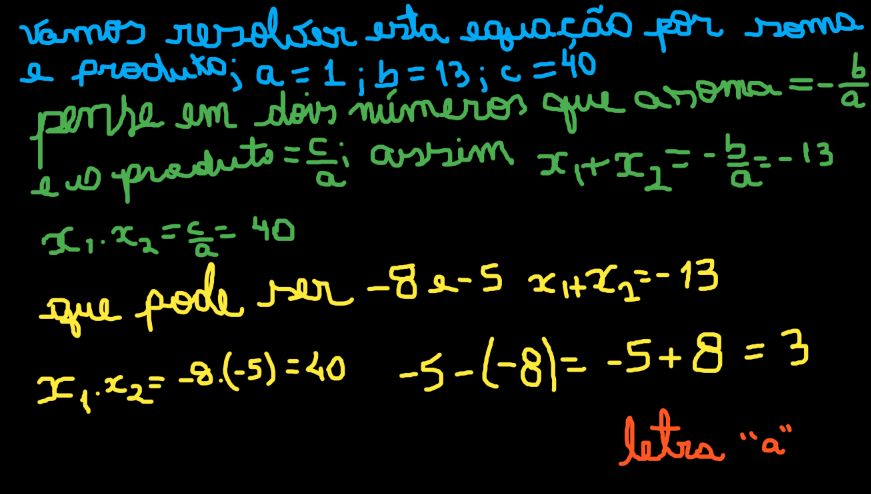 vamos resolver esta equação por soma
e produto; a = 1; b = 13; c = 40
pense em dois números que a soma = -b/a
e o produto = c/a; assim x₁+x₂ = -b/a = -13
x₁.x₂ = c/a = 40
que pode ser -8 e -5 x₁+x₂ = -13
x₁.x₂ = -8.(-5) = 40 -5-(-8) = -5+8 = 3
letra "a"